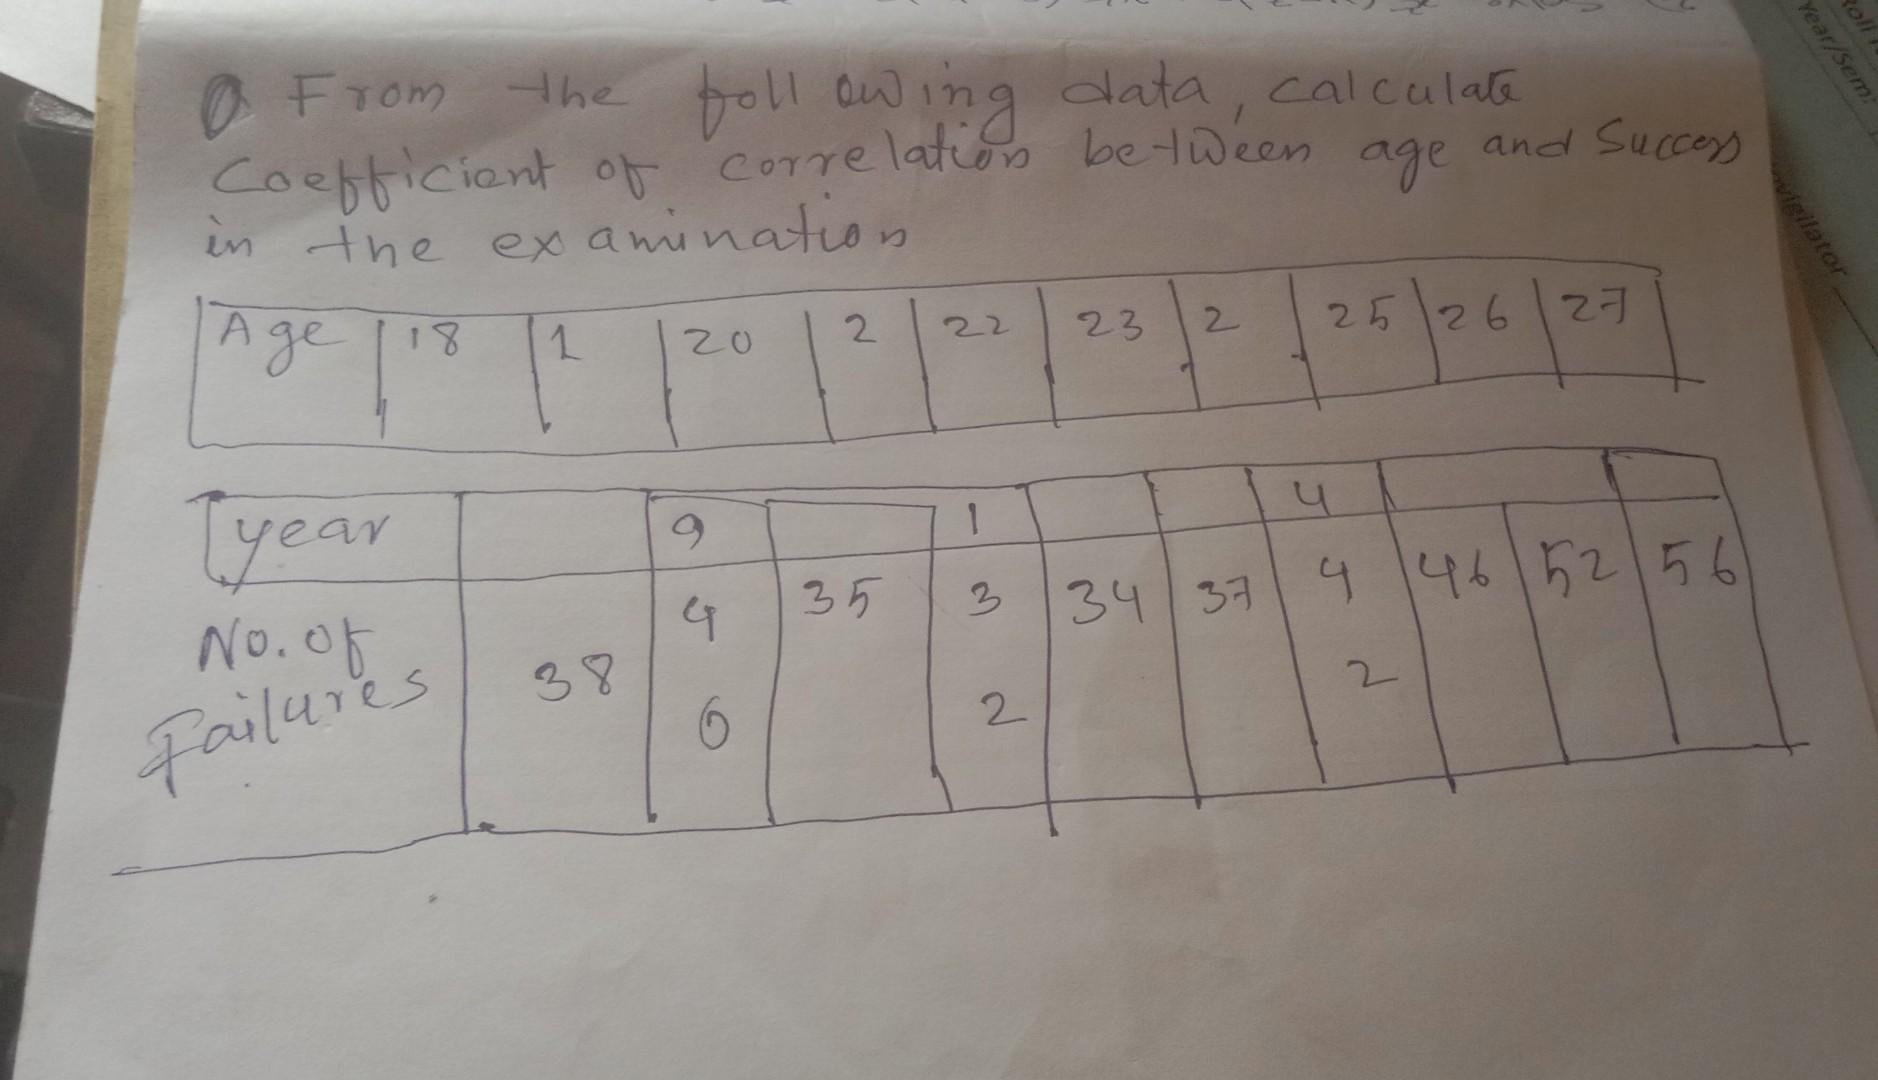 Q From the following data, calculate
Coefficient of correlation between age and Success
in the examination
Age 18 1 20 2 22 23 2 25 26 27
year 9 1 4
No. of Failures 38 4 35 3 34 37 4 46 52 56
6 2 2
Year/Sem: